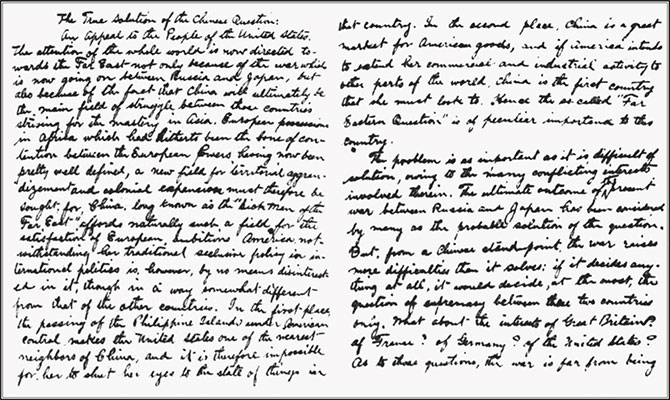 The True Solution of the Chinese Question:
An Appeal to the People of the United States.
The attention of the whole world is now directed to-
wards the Far East not only because of the war which
is now going on between Russia and Japan, but
also because of the fact that China will ultimately be
the main field of struggle between those countries
striving for the mastery in Asia. European possessions
in Africa which had hitherto been the bone of con-
tention between the European Powers having now been
pretty well defined, a new field for territorial aggran-
dizement and colonial expansion must therefore be
sought for. China, long known as the "Sick Man of the
Far East" affords naturally such a field for the
satisfaction of European ambitions. America, not-
withstanding her traditional seclusion policy in in-
ternational politics is, however, by no means disinterest-
ed in it, though in a way somewhat different
from that of the other countries. In the first place,
the passing of the Philippine Islands under American
control makes the United States one of the nearest
neighbors of China, and it is therefore impossible
for her to shut her eyes to the state of things in
that country. In the second place, China is a great
market for American goods, and if America intends
to extend her commercial and industrial activity to
other parts of the world, China is the first country
that she must look to. Hence the so called "Far
Eastern Question" is of peculiar importance to this
country.
The problem is as important as it is difficult of
solution, owing to the many conflicting interests
involved therein. The ultimate outcome of present
war between Russia and Japan has been considered
by many as the probable solution of the question.
But, from a Chinese standpoint, the war raises
more difficulties than it solves; if it decides any-
thing at all, it would decide, at the most, the
question of supremacy between these two countries
only. What about the interests of Great Britain?
of France? of Germany? of the United States?
As to those questions, the war is far from being